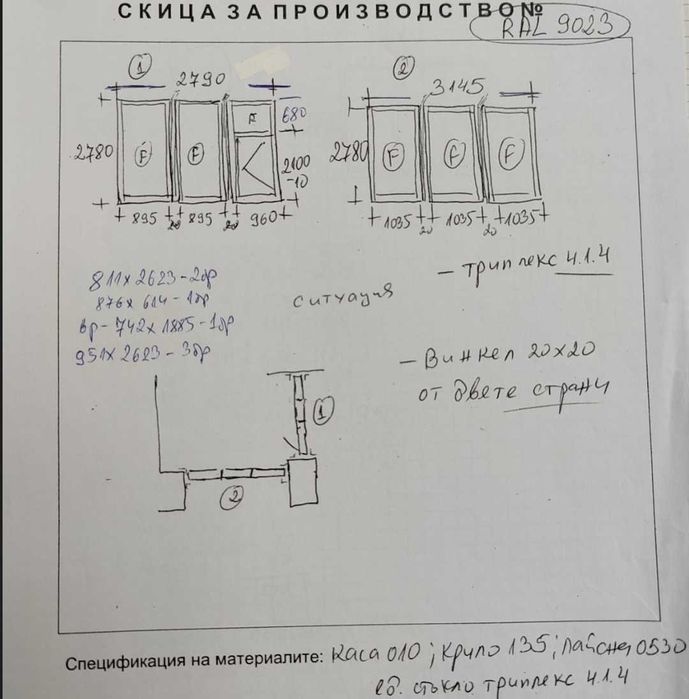 СКИЦА ЗА ПРОИЗВОДСТВО №
RAL 9023
1
2790
F
F
F
2780
680
2100
-10
895
20
895
20
960
2
3145
2780
F
F
F
1035
20
1035
20
1035
811x2623-2бр
876x614-1бр
вр-742x1885-1бр
951x2623-3бр
ситуация
- триплекс 4.1.4
- Винкел 20x20
от двете страни
1
2
Спецификация на материалите: Каса 010; Крило 135; Лайсна 0530
стъкло триплекс 4.1.4